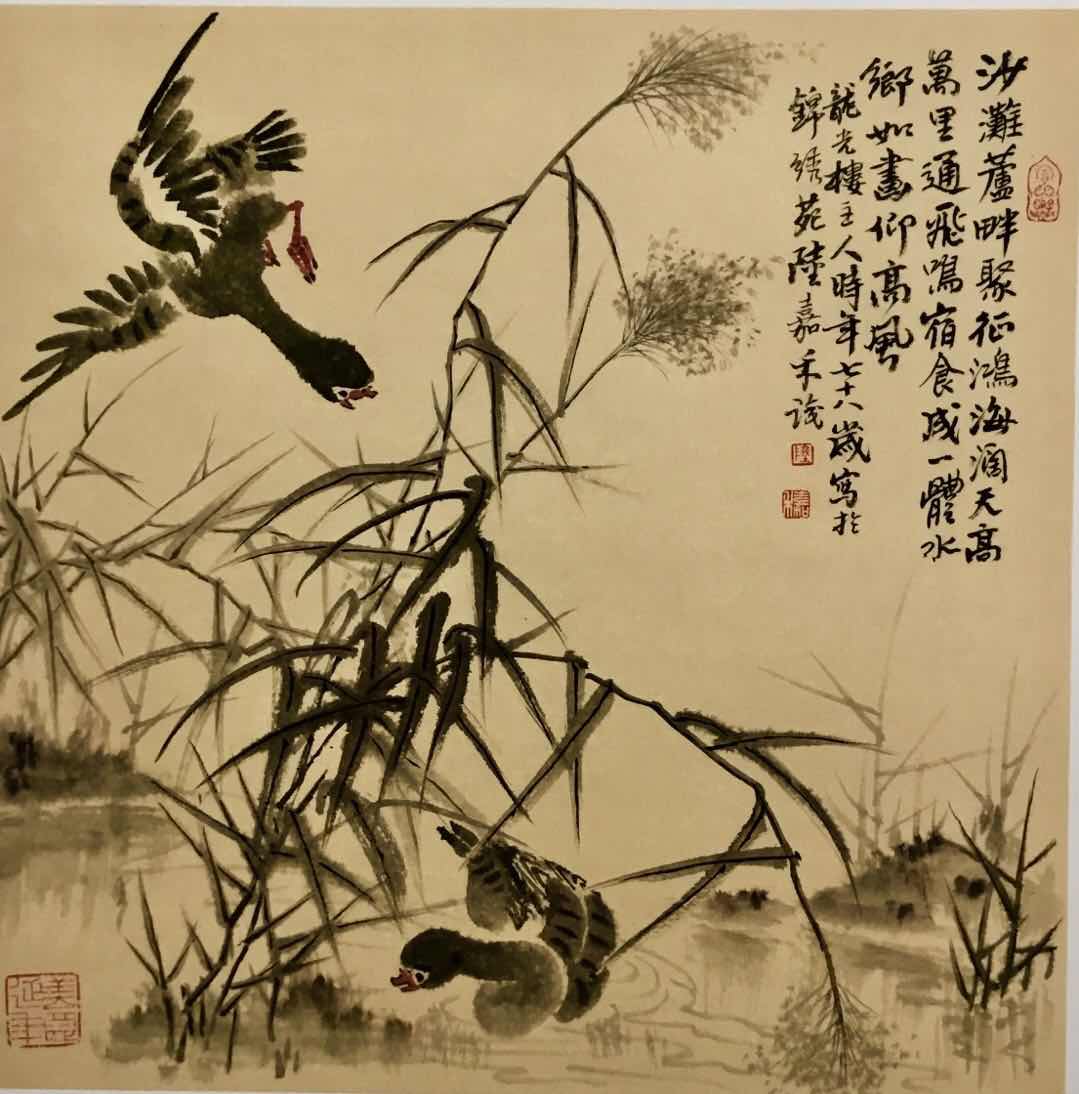 沙灘蘆畔聚征鴻海濶天高
萬里通飛鳴宿食成一體水
鄉如畫仰高風
龍光樓主人時年七十八歲寫於
錦绣苑陸嘉禾識
陸
嘉禾
美意延年